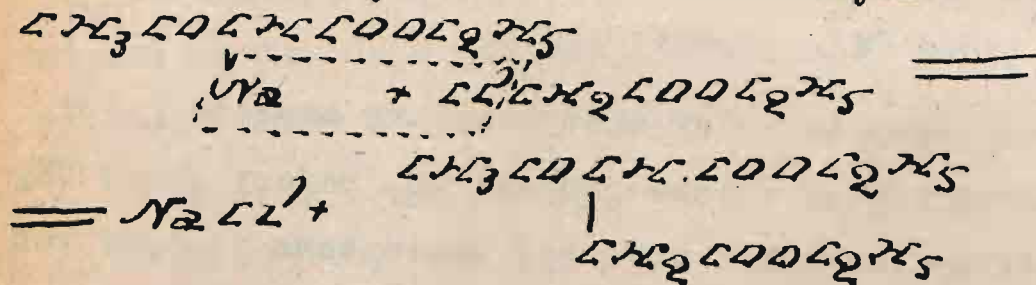 CH3COCHCOOC2H5
Na + Cl CH2COOC2H5 =
CH3COCH.COOC2H5
= NaCl +
|
CH2COOC2H5